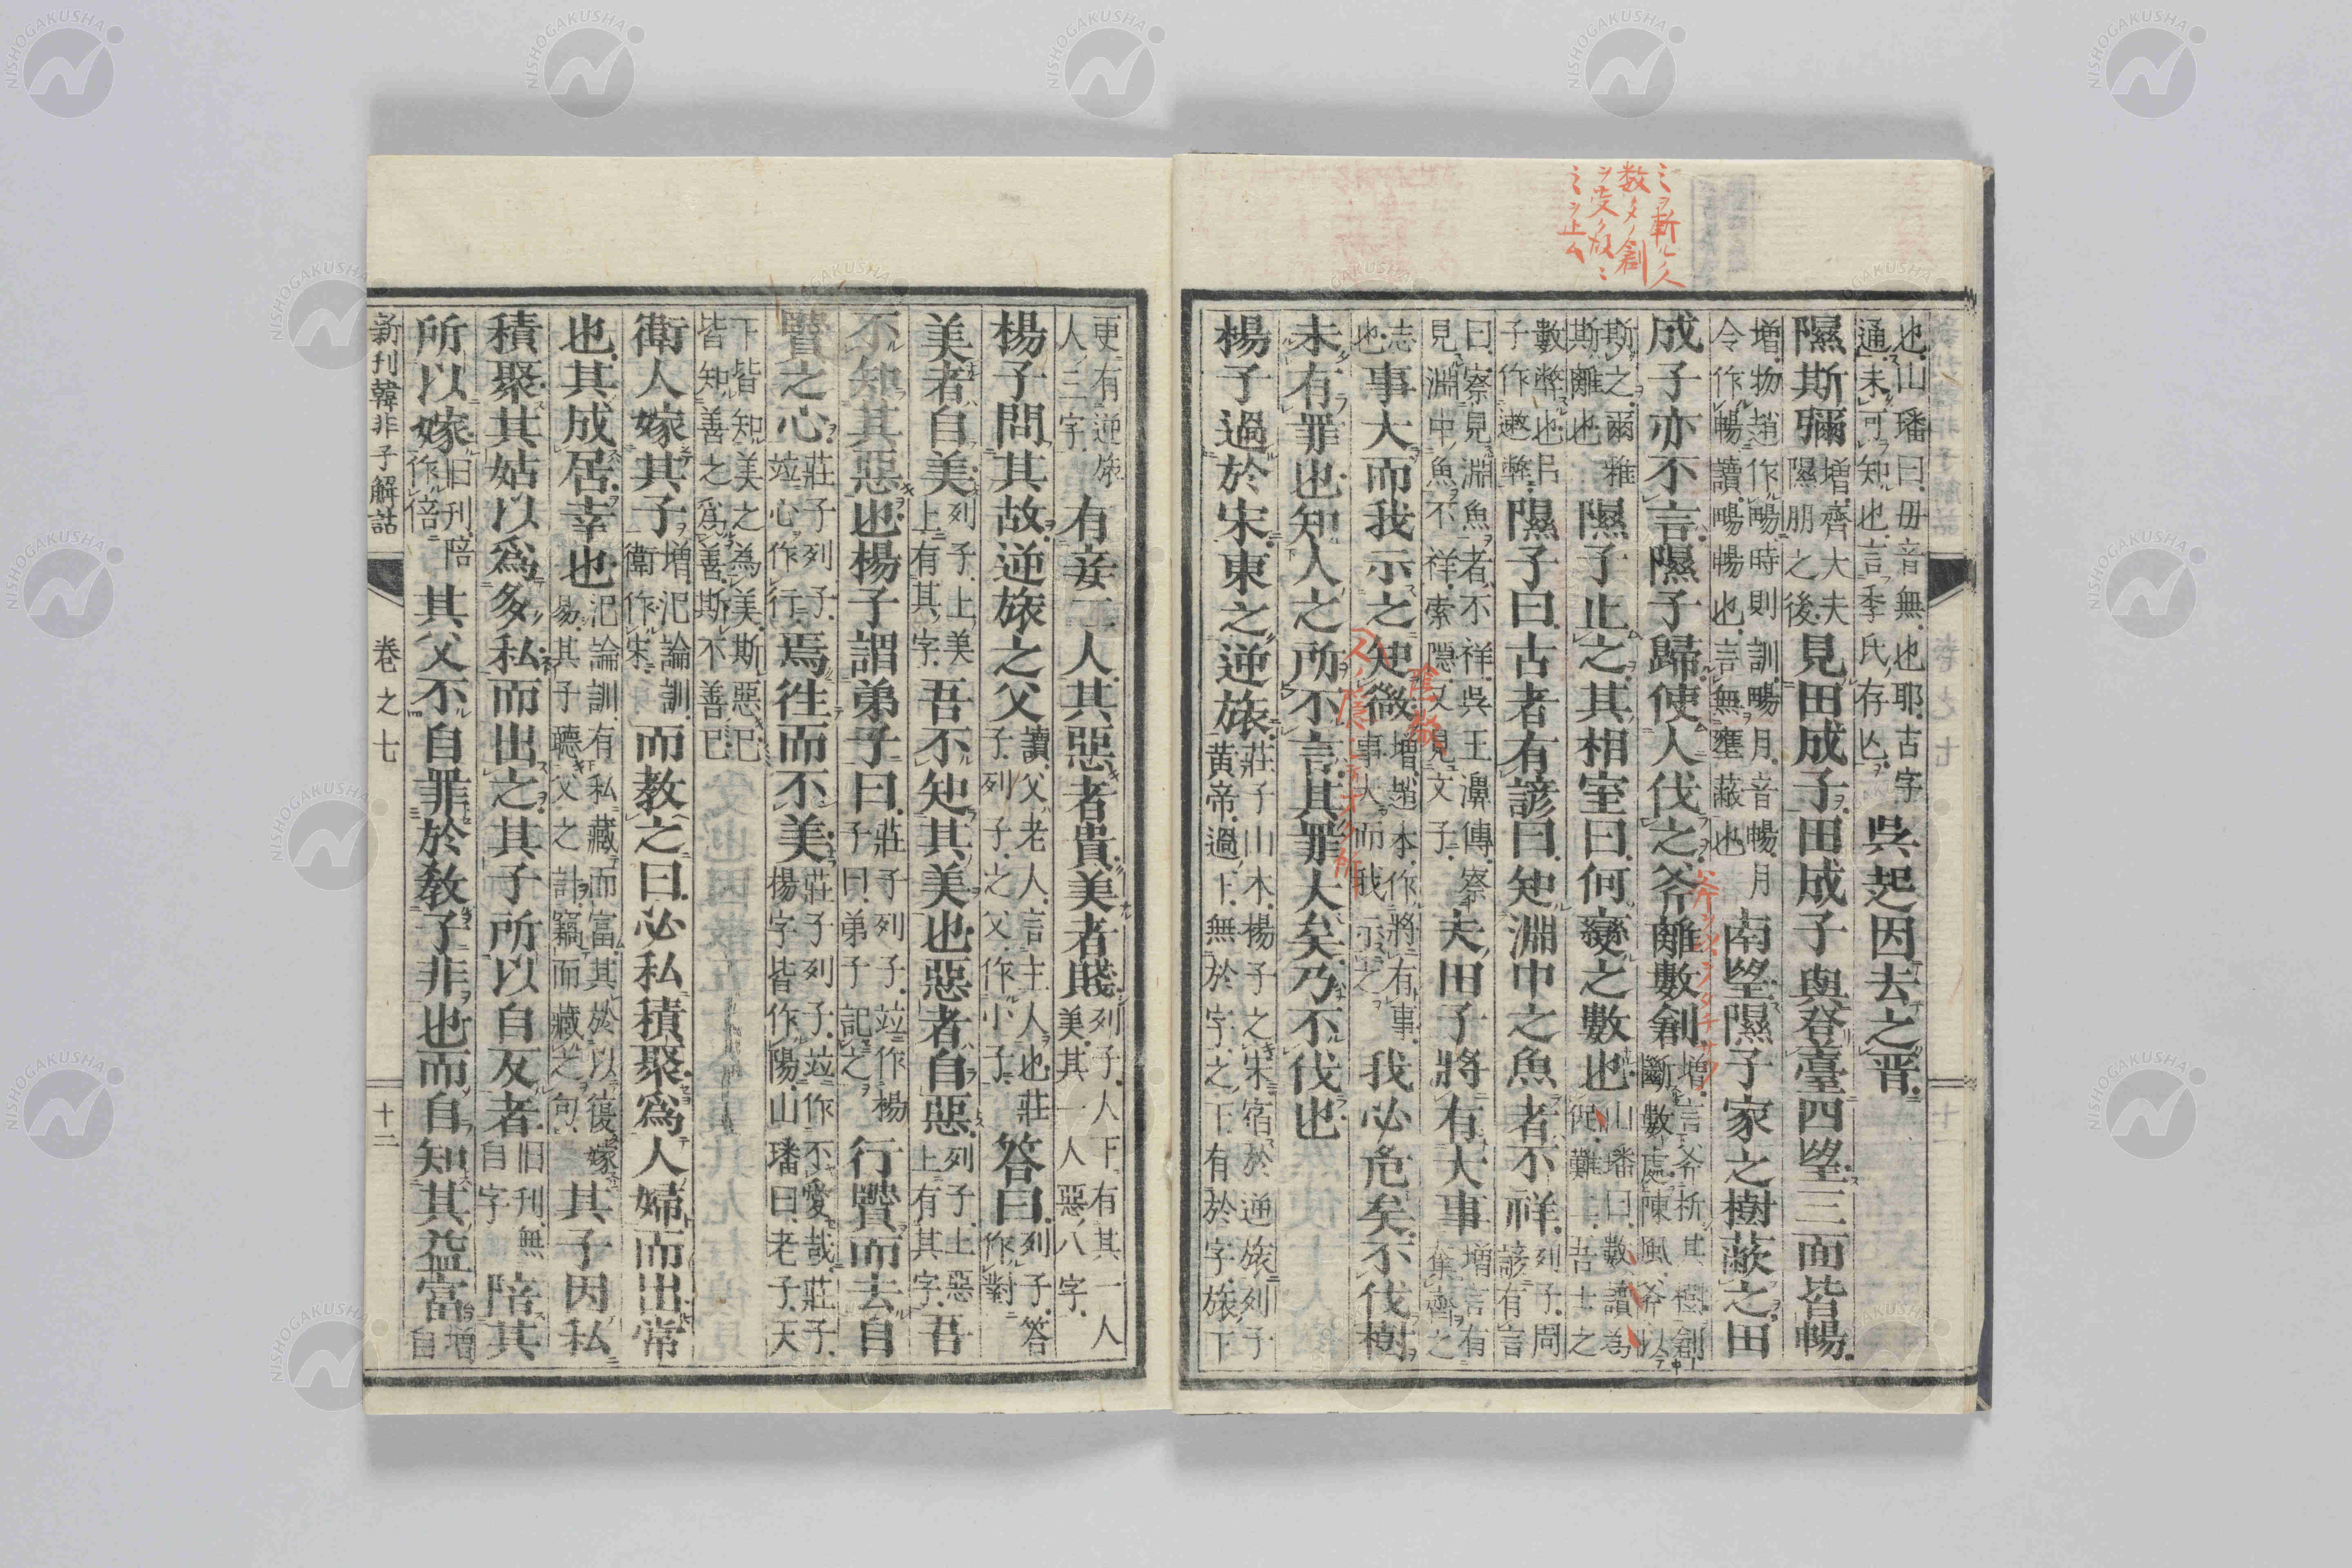 ミヲ斬ルノ人
数タノ創
ヲ受ク
ミヲ止ム
也山璠曰毋音無也耶古字
通未可知也言季氏存亾
吳起因去之晋
隰斯彌
增齊大夫
隰朋之後
見田成子田成子與登臺四望三面皆暢
增物趙作暢時則訓暢月音暢月
令作暢讀暢暢也言無壅蔽也
南望隰子家之樹蔽之田
成子亦不言隰子歸使人伐之斧離數創
增言斧析其樹創
斷數處陳風斧以
斯之爾雅
斯離也
隰子止之其相室曰何變之數也
山璠曰數讀為
促難二吾士之
數弊也呂
子作遬弊
隰子曰古者有諺曰知淵中之魚者不祥
列子周
諺有言
曰察見淵魚者不祥吳王濞傳察
見淵中魚不祥索隱又見文子
夫田子將有大事
增言有
集齊之
志
也
事大而我示之知微
增趙本作將有事
事大而我示之
我必危矣不伐樹
未有罪也知人之所不言其罪大矣乃不伐也
楊子過於宋東之逆旅
莊子山木楊子之宋宿於逆旅列子
黃帝過下無於字之下有於字旅下
陰微
更有逆旅
人三字
有妾二人其惡者貴美者賤
列子人下有其一人
美其一人惡八字
楊子問其故逆旅之父
讀父老人言主人也莊
子列子之父作小子
答曰
列子答
作對
美者自美
列子上美
上有其字
吾不知其美也惡者自惡
列子上惡
上有其字
吾
不知其惡也楊子謂弟子曰
莊子列子竝作楊
子曰弟子記之
行賢而去自
賢之心
莊子列子
竝心作行
焉往而不美
莊子列子竝作不愛哉莊子
楊字皆作陽山璠曰老子天
下皆知美之為美斯惡已
皆知善之爲善斯不善已
衛人嫁其子
增氾論訓
衛作宋
而敎之曰必私積聚爲人婦而出常
也其成居幸也
氾論訓有私藏而富其於以復嫁
易其子聽父之計竊而藏之句
其子因私
積聚其姑以爲多私而出之其子所以自反者
旧刊無
自字
陪其
所以嫁
旧刊陪
作倍
其父不自罪於敎子非也而自知其益富
增
自
新刊韓非子解詁
卷之七
十二